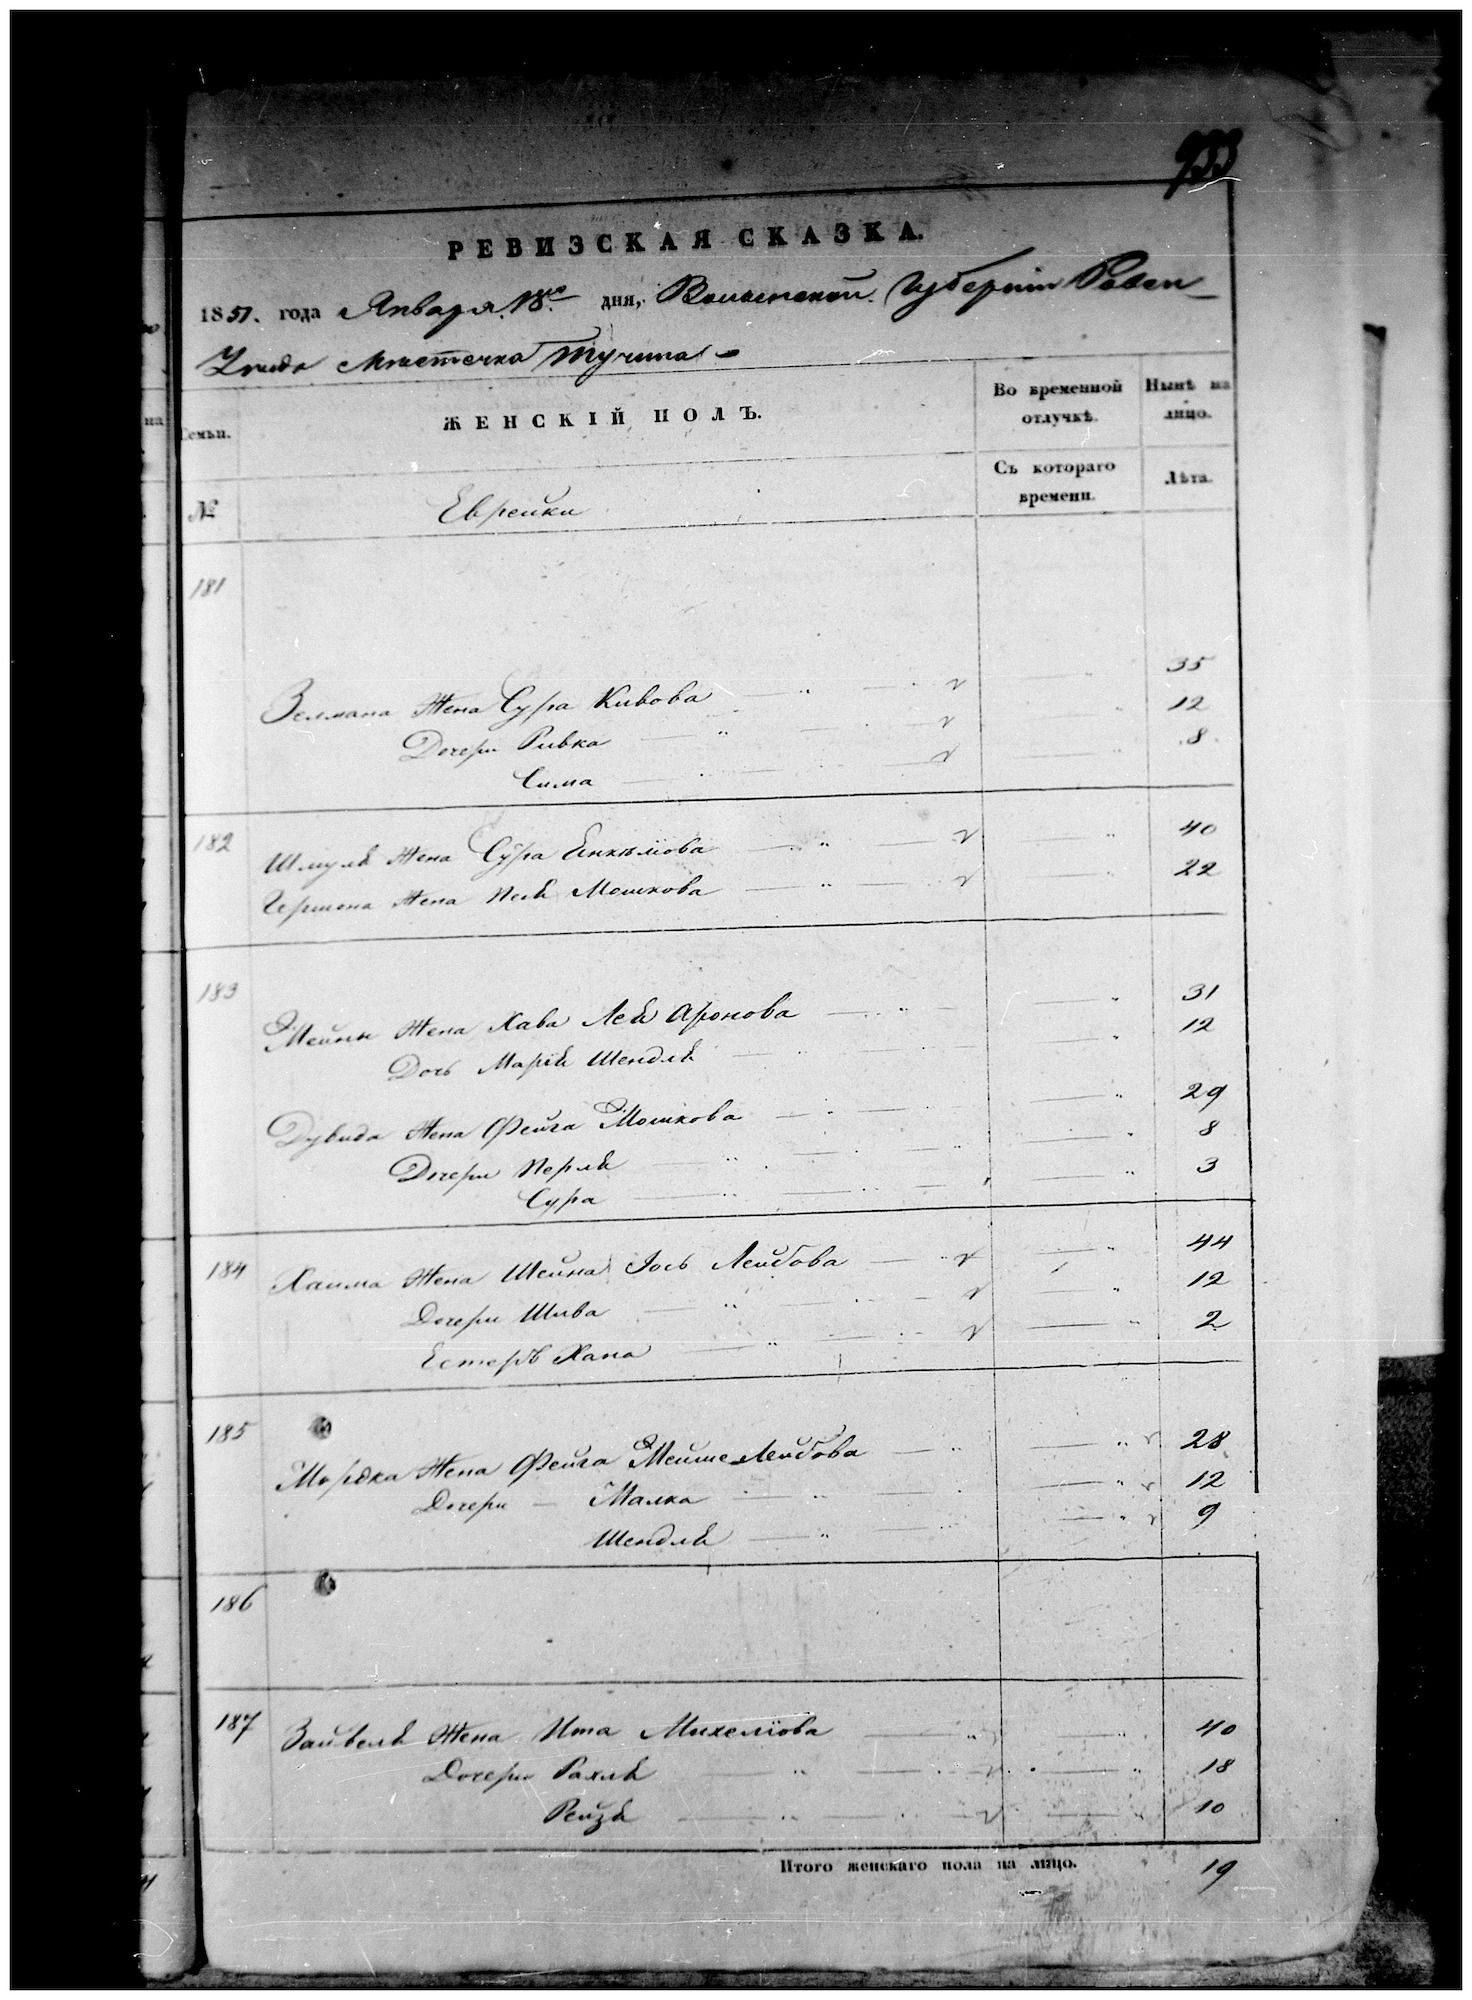 933
РЕВИЗСКАЯ СКАЗКА.
1851. года Января 18го дня, Волынской Губернiи Ровен-
Уѣзда Мѣстечка Тучина
Семьи. ЖЕНСКIЙ ПОЛЪ. Во временной отлучкѣ. Нынѣ на лицо.
№ Еврейки Съ котораго времени. Лѣта.
181
Зелмана Жена Сура Кивова 35
Дочери Ривка 12
Сима 8
182 Шмуля Жена Сура Енкелiова 40
Гершона Жена Песя Мошкова 22
183
Мейши Жена Хава Лея Аронова 31
Дочь Марiя Шендля 12
Дувида Жена Фейга Мошкова 29
Дочери Перля 8
Сура 3
184 Хаима Жена Шейна Iось Лейбова 44
Дочери Шива 12
Естеръ Хана 2
185
Мордка Жена Фейга Мейше Лейбова 28
Дочери Малка 12
Шендля 9
186
187 Зайвеля Жена Ита Михелiова 40
Дочери Рахля 18
Рейзя 10
Итого женскаго пола на лицо. 19